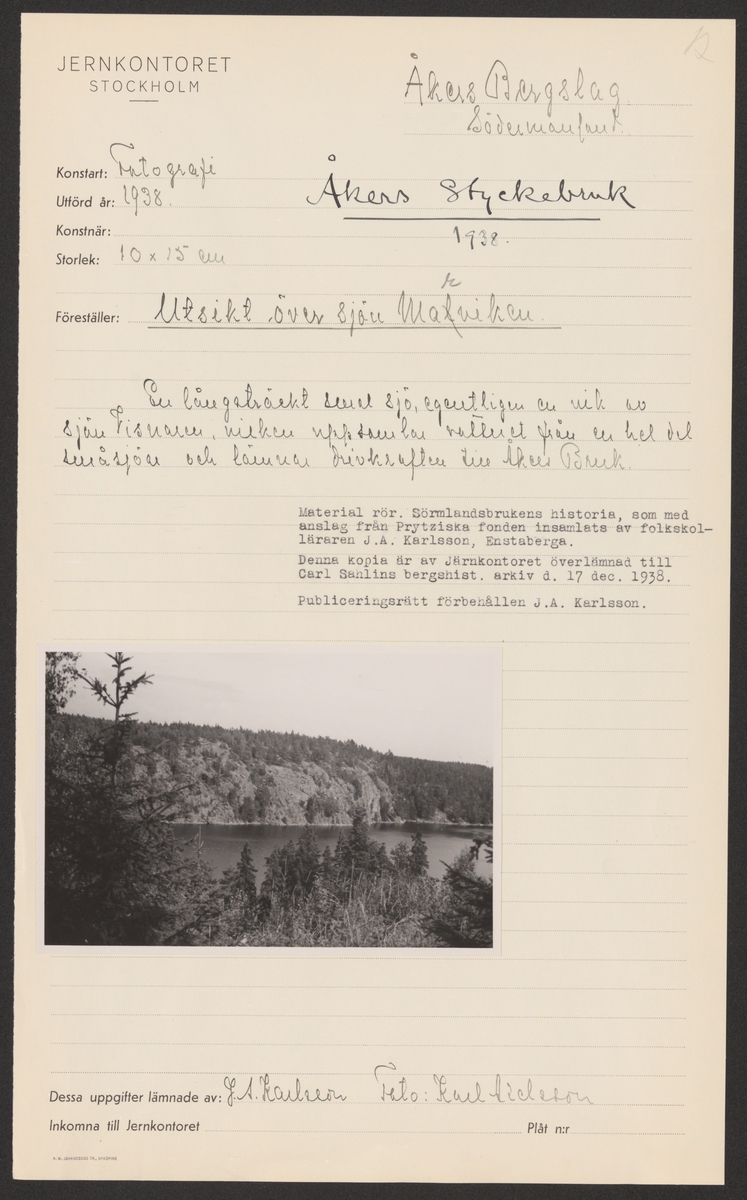 12
JERNKONTORET
STOCKHOLM
Åkers Bergslag
Södermanland.
Konstart: Fotografi
Utförd år: 1938.
Åkers Styckebruk
1938.
Konstnär:
Storlek: 10 x 15 cm
k
Föreställer: Utsikt över sjön Marviken.
En långsträckt smal sjö, egentligen en vik av
sjön Visnaren, vilken uppsamlar vattnet från en hel del
småsjöar och lämnar drivkraften till Åkers Bruk.
Material rör. Sörmlandsbrukens historia, som med
anslag från Prytziska fonden insamlats av folkskol-
läraren J.A. Karlsson, Enstaberga.
Denna kopia är av Järnkontoret överlämnad till
Carl Sahlins bergshist. arkiv d. 17 dec. 1938.
Publiceringsrätt förbehållen J.A. Karlsson.
Dessa uppgifter lämnade av: J.A. Karlsson Foto: Karl
Inkomna till Jernkontoret
Plåt n:r